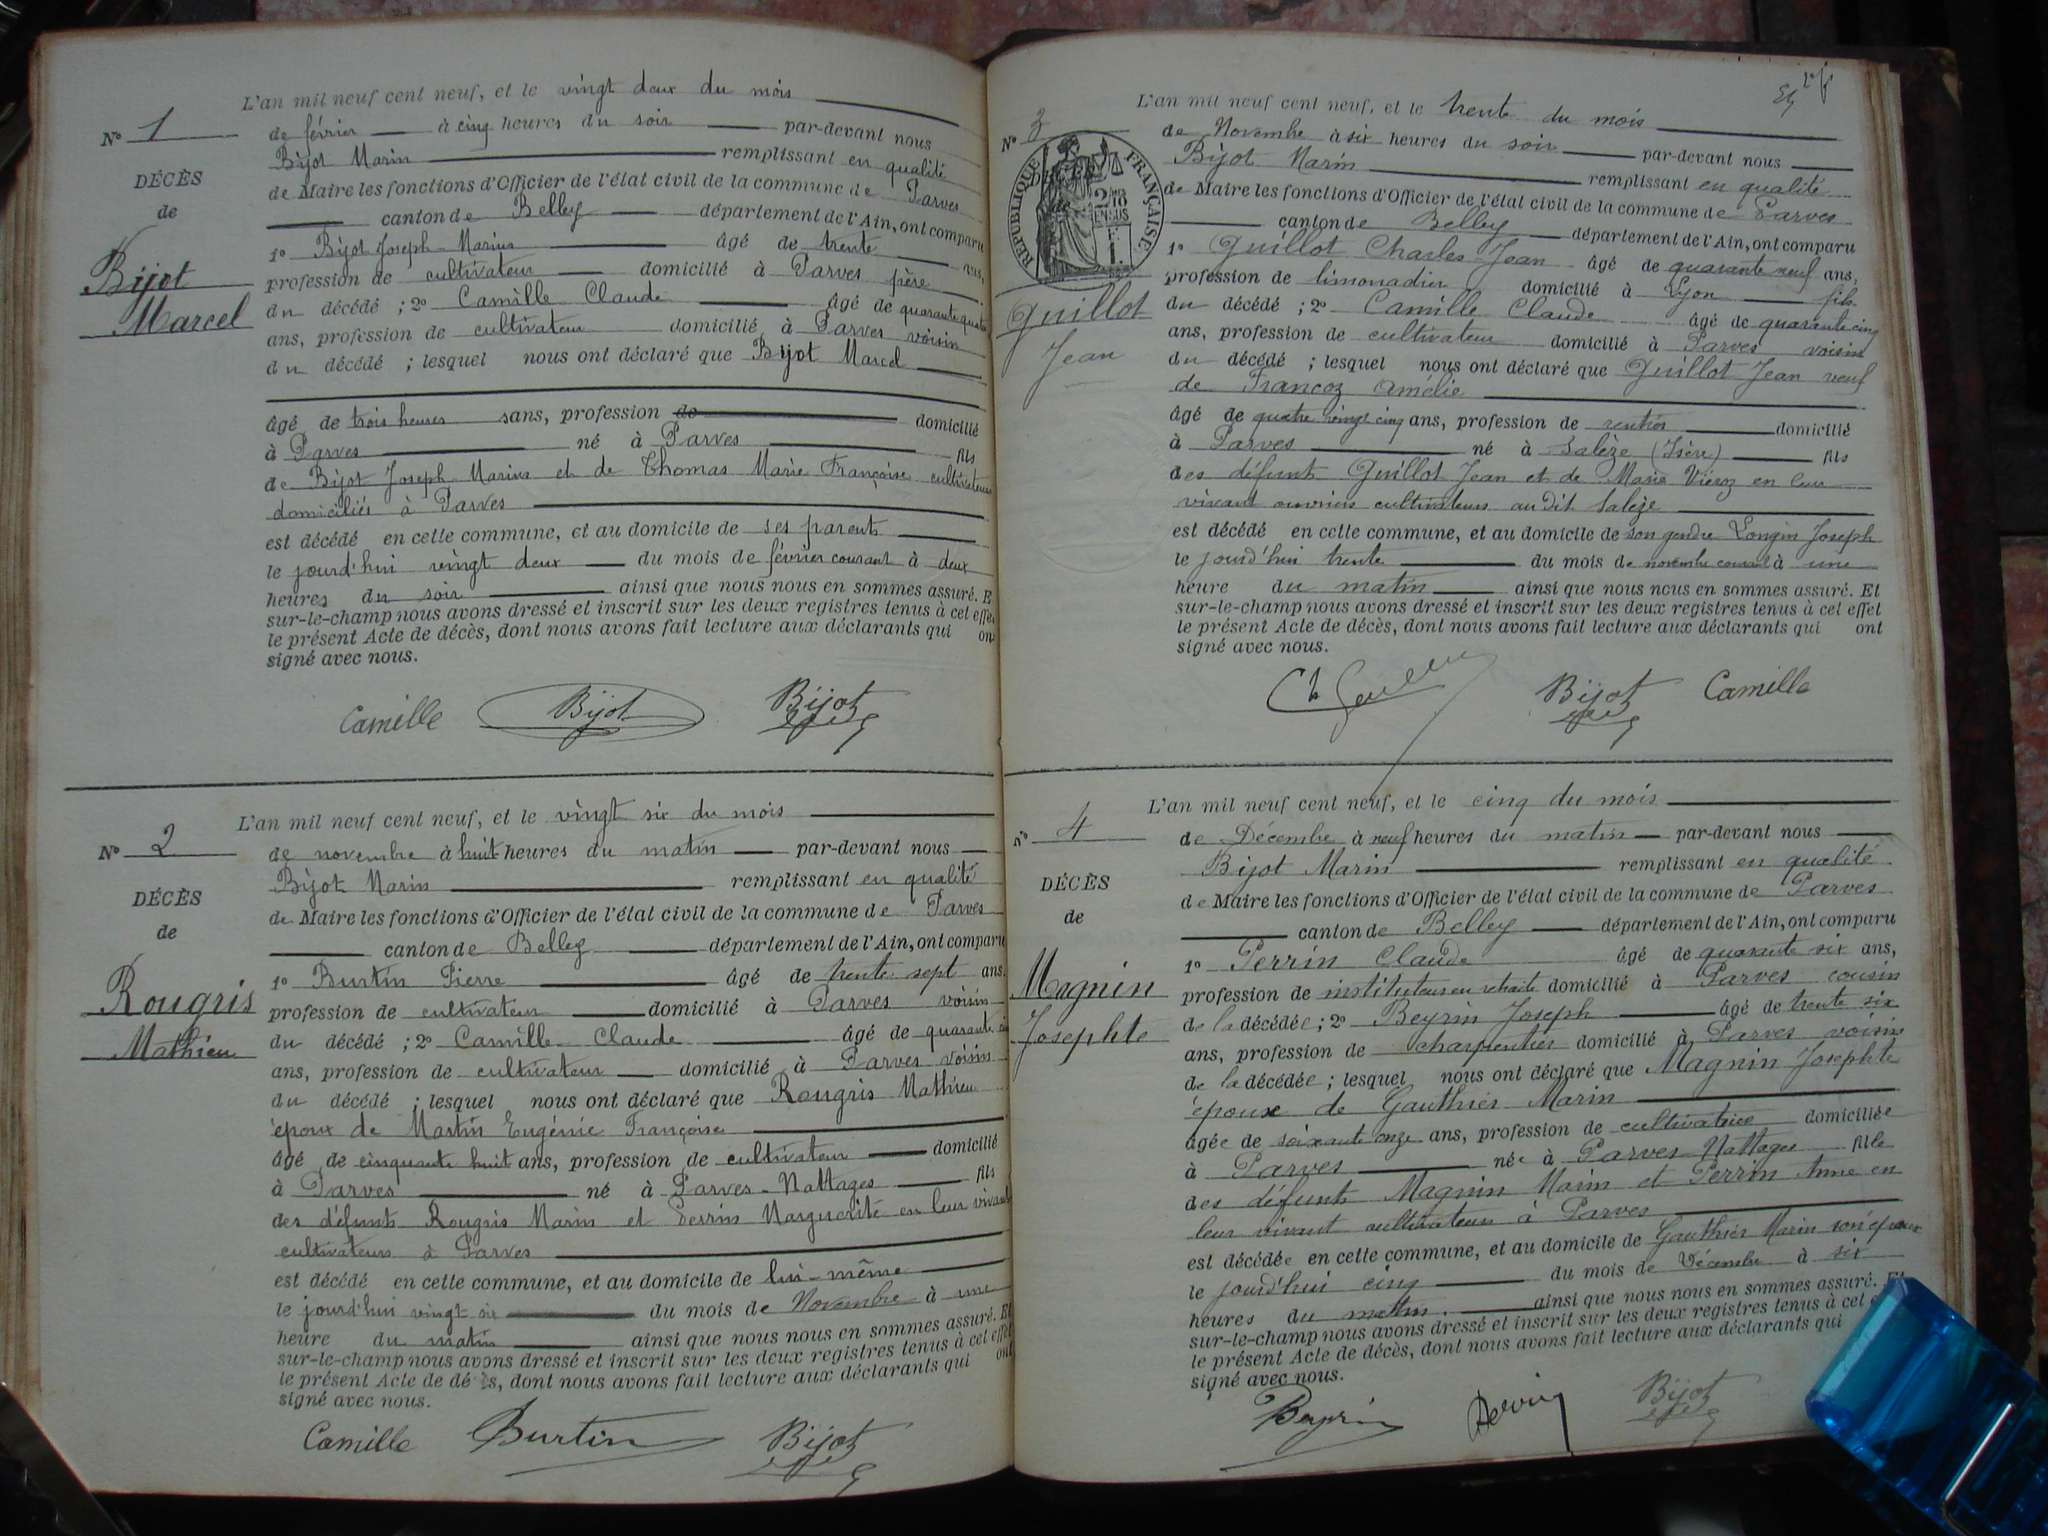 L'an mil neuf cent neuf, et le vingt deux du mois
N° 1
de février à cinq heures du soir par-devant nous
Bijot Marin remplissant en qualité
DÉCÈS
de Maire les fonctions d'Officier de l'état civil de la commune de Parves
de
canton de Belley département de l'Ain, ont comparu
1° Bijot Joseph-Marius âgé de trente ans,
Bijot
profession de cultivateur domicilié à Parves père
Marcel
du décédé ; 2° Camille Claude âgé de quarante quatre
ans, profession de cultivateur domicilié à Parves voisin
du décédé ; lesquel nous ont déclaré que Bijot Marcel
âgé de trois heures sans, profession de domicilié
à Parves né à Parves fils
de Bijot Joseph Marius et de Thomas Marie Françoise cultivateurs
domiciliés à Parves
est décédé en cette commune, et au domicile de ses parents
le jourd'hui vingt deux du mois de février courant à deux
heures du soir ainsi que nous nous en sommes assuré. E
sur-le-champ nous avons dressé et inscrit sur les deux registres tenus à cet effe
le présent Acte de décès, dont nous avons fait lecture aux déclarants qui on
signé avec nous.
Camille Bijot Bijot
L'an mil neuf cent neuf, et le vingt six du mois
N° 2
de novembre à huit heures du matin par-devant nous
Bijot Marin remplissant en qualité
DÉCÈS
de Maire les fonctions d'Officier de l'état civil de la commune de Parves
de
canton de Belley département de l'Ain, ont comparu
1° Burtin Pierre âgé de trente sept ans.
Rougris
profession de cultivateur domicilié à Parves voisin
Mathieu
du décédé ; 2° Camille Claude âgé de quarante
ans, profession de cultivateur domicilié à Parves voisin
du décédé ; lesquel nous ont déclaré que Rougris Mathieu
époux de Martin Eugénie Françoise
âgé de cinquante huit ans, profession de cultivateur domicilié
à Parves né à Parves-Nattages fils
des défunts Rougris Marin et Perrin Marguerite en leur vivant
cultivateurs à Parves
est décédé en cette commune, et au domicile de lui-même
le jourd'hui vingt six du mois de Novembre à une
heure du matin ainsi que nous nous en sommes assuré. Et
sur-le-champ nous avons dressé et inscrit sur les deux registres tenus à cet effet
le présent Acte de décès, dont nous avons fait lecture aux déclarants qui ont
signé avec nous.
Camille Burtin Bijot
L'an mil neuf cent neuf, et le trente du mois
N° 3
de Novembre à six heures du soir par-devant nous
Bijot Marin remplissant en qualité
RÉPUBLIQUE FRANÇAISE
de Maire les fonctions d'Officier de l'état civil de la commune de Parves
canton de Belley département de l'Ain, ont comparu
1° Guillot Charles Jean âgé de quarante neuf ans,
profession de limonadier domicilié à Lyon fils
Guillot
Jean
du décédé ; 2° Camille Claude âgé de quarante cinq
ans, profession de cultivateur domicilié à Parves voisin
du décédé ; lesquel nous ont déclaré que Guillot Jean veuf
de Francoz Amélie
âgé de quatre vingt cinq ans, profession de rentier domicilié
à Parves né à Salèze (Isère) fils
des défunts Guillot Jean et de Marie Viéroz en leur
vivant ouvriers cultivateurs au dit Salèze
est décédé en cette commune, et au domicile de son gendre Longin Joseph
le jourd'hui trente du mois de novembre courant à une
heure du matin ainsi que nous nous en sommes assuré. Et
sur-le-champ nous avons dressé et inscrit sur les deux registres tenus à cet effet
le présent Acte de décès, dont nous avons fait lecture aux déclarants qui ont
signé avec nous.
Bijot Camille
L'an mil neuf cent neuf, et le cinq du mois
N° 4
de Décembre à neuf heures du matin par-devant nous
Bijot Marin remplissant en qualité
DÉCÈS
de Maire les fonctions d'Officier de l'état civil de la commune de Parves
de
canton de Belley département de l'Ain, ont comparu
1° Perrin Claude âgé de quarante six ans,
Magnin
profession de instituteur en retraite domicilié à Parves cousin
Josephte
de la décédée ; 2° Beyrin Joseph âgé de trente six
ans, profession de charpentier domicilié à Parves voisin
de la décédée ; lesquel nous ont déclaré que Magnin Josephte
épouse de Gauthier Marin
âgée de soixante onze ans, profession de cultivatrice domiciliée
à Parves née à Parves Nattages fille
des défunts Magnin Marin et Perrin Anne en
leur vivant cultivateurs à Parves
est décédée en cette commune, et au domicile de Gauthier Marin son époux
le jourd'hui cinq du mois de Décembre à six
heures du matin. ainsi que nous nous en sommes assuré. Et
sur-le-champ nous avons dressé et inscrit sur les deux registres tenus à cet
le présent Acte de décès, dont nous avons fait lecture aux déclarants qui
signé avec nous.
Beyrin Perrin Bijot